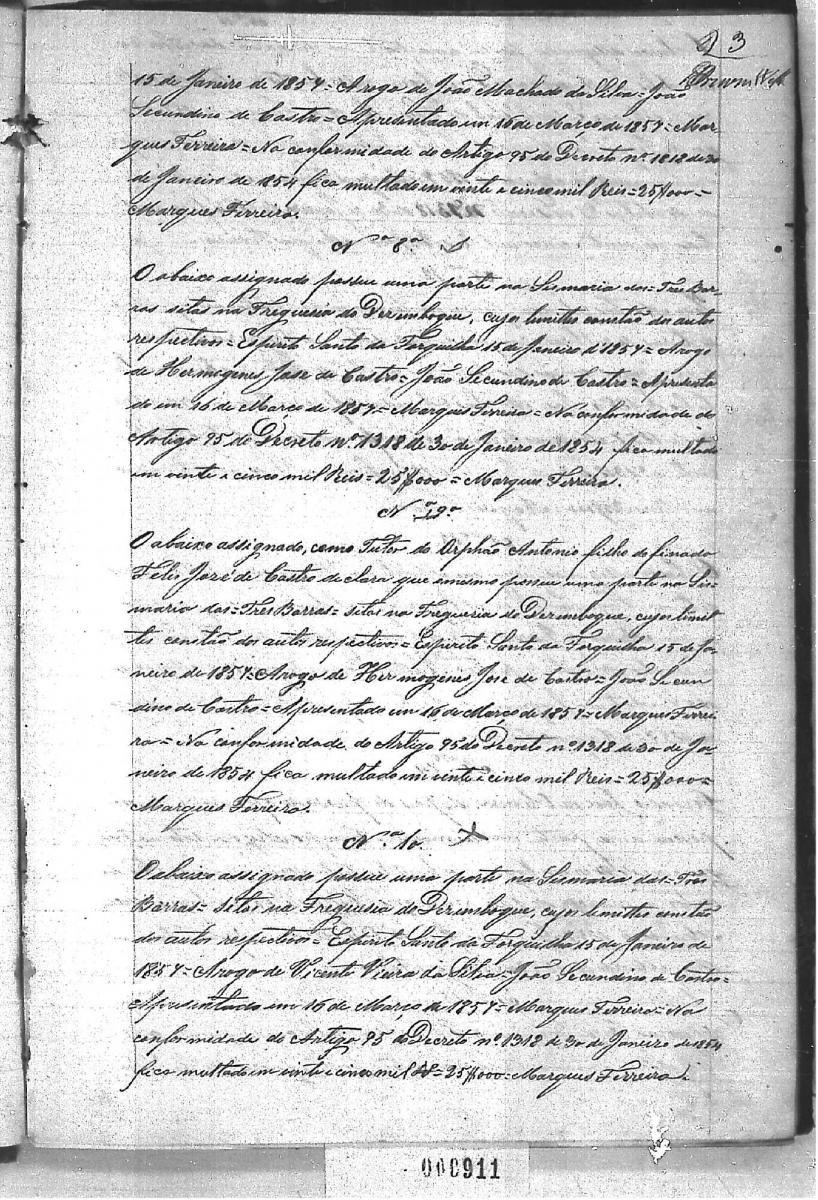 3
15 de Janeiro de 1857 = Arogo de João Machado da Silva = João
Secundino de Castro = Apresentado em 16 de Março de 1857 = Mar
ques Ferreira = Na conformidade do Artigo 95 do Decreto nº 1318 de 30
de Janeiro de 1854 fica multado em vinte e cinco mil Reis = 25$000 =
Marques Ferreira.
Nº 8º
O abaixo assignado possue uma parte na Sismaria das = Tres Bar-
ras sitas na Freguesia do Derumboque, cujos limittes constão dos autos
respectivos = Espirito Santo da Forquilha 15 de Janeiro d'1857 = Arogo
de Hermogenes José de Castro = João Secundino de Castro = Apresenta
do em 16 de Março de 1857 = Marques Ferreira = Na conformidade do
Artigo 95 do Decreto nº 1318 de 30 de Janeiro de 1854 fica multado
em vinte e cinco mil Reis = 25$000 = Marques Ferreira.
Nº 9º
O abaixo assignado, como Tutor do Orphão Antonio filho do finado
Felis José de Castro declara que o mesmo possue uma parte na Sis-
maria das = Tres Barras = sitas na Freguesia do Derumboque, cujos limit
tes constão dos autos respectivos = Espirito Santo da Forquilha 15 de Ja-
neiro de 1857 = Arogo de Hermogenes José de Castro = João Secun
dino de Castro = Apresentado em 16 de Março de 1857 = Marques Ferrei
ra = Na conformidade do Artigo 95 do Decreto nº 1318 de 30 de Ja-
neiro de 1854 fica multado em vinte e cinco mil Reis = 25$000 =
Marques Ferreira.
Nº 10
O abaixo assignado possue uma parte na Sismaria das = Tres
Barras = sitas na Freguesia do Derumboque, cujos limittes constão
dos autos respectivos = Espirito Santo da Forquilha 15 de Janeiro de
1857 = Arogo de Vicente Vieira da Silva = João Secundino de Castro =
Apresentado em 16 de Março de 1857 = Marques Ferreira = Na
conformidade do Artigo 95 do Decreto nº 1318 de 30 de Janeiro de 1854
fica multado em vinte e cinco mil = 25$000 = Marques Ferreira.
000911